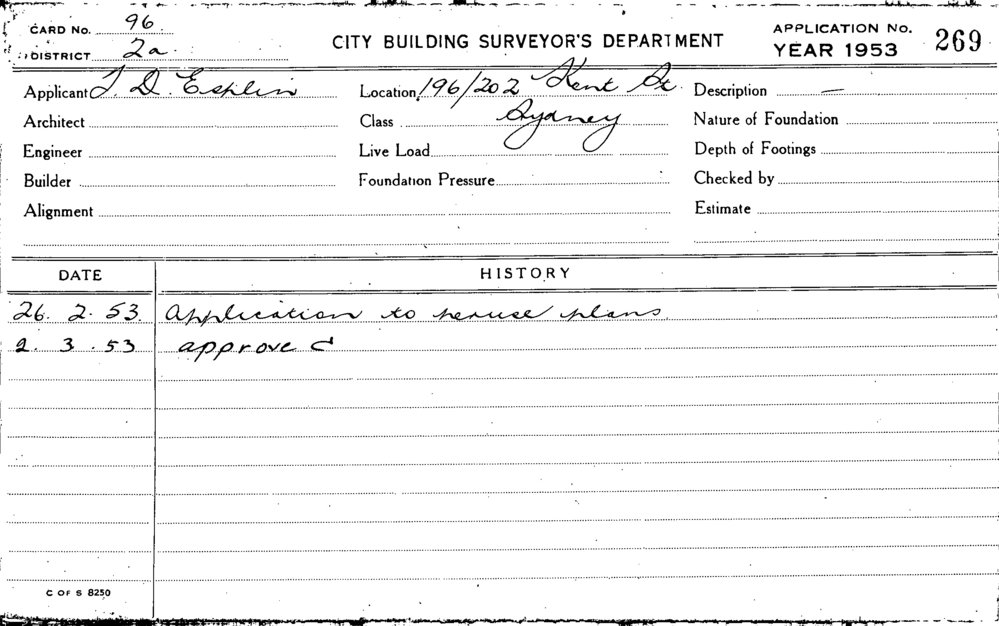 CARD No. 96
DISTRICT 2a
CITY BUILDING SURVEYOR'S DEPARTMENT
APPLICATION No. 269
YEAR 1953
Applicant J. D. Esplin
Location 196/202 Kent St.
Description —
Architect
Class Sydney
Nature of Foundation
Engineer
Live Load
Depth of Footings
Builder
Foundation Pressure
Checked by
Alignment
Estimate
DATE HISTORY
26. 2. 53. Application to peruse plans
2. 3. 53 approved
C OF S 8250